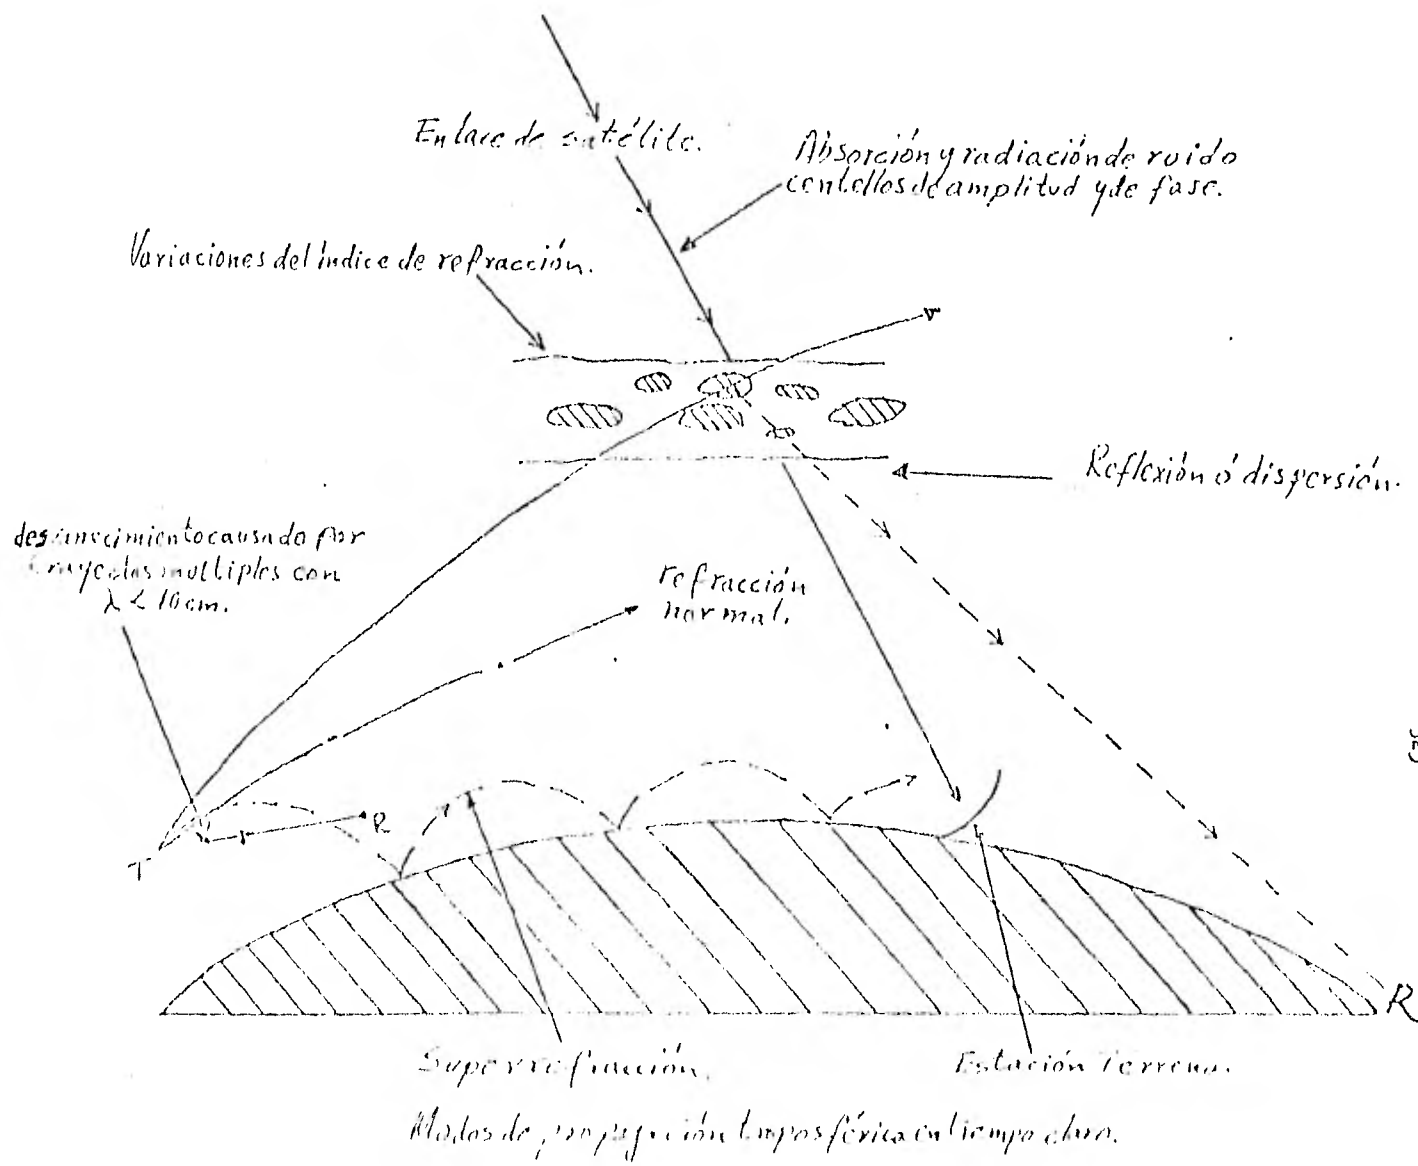 Enlace de satélite.
Absorción y radiación de ruido
centellos de amplitud y de fase.
Variaciones del índice de refracción.
Reflexión ó dispersión.
causado por
trayectos multiples con
λ < 10 cm.
refracción
normal.
R
T
R
Superrefracción.
Estación Terrena.
Modos de propagación troposférica en tiempo claro.